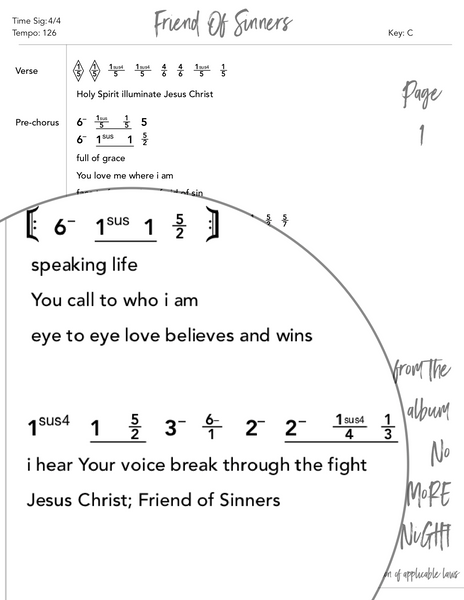 Time Sig:4/4
Tempo: 126
Friend Of Sinners
Key: C
Verse
1/5 1/5 1sus4/5 1sus4/5 4/6 4/6 1sus4/5 1/5
Holy Spirit illuminate Jesus Christ
Page
1
Pre-chorus
6- 1sus/5 1/5 5
6- 1sus 1 5/2
full of grace
You love me where i am
of sin
5/7
[: 6- 1sus 1 5/2 :]
speaking life
You call to who i am
eye to eye love believes and wins
from the
album
No
MoRE
NiGHT
1sus4 1 5/2 3- 6-/1 2- 2- 1sus4/4 1/3
i hear Your voice break through the fight
Jesus Christ; Friend of Sinners
of applicable laws